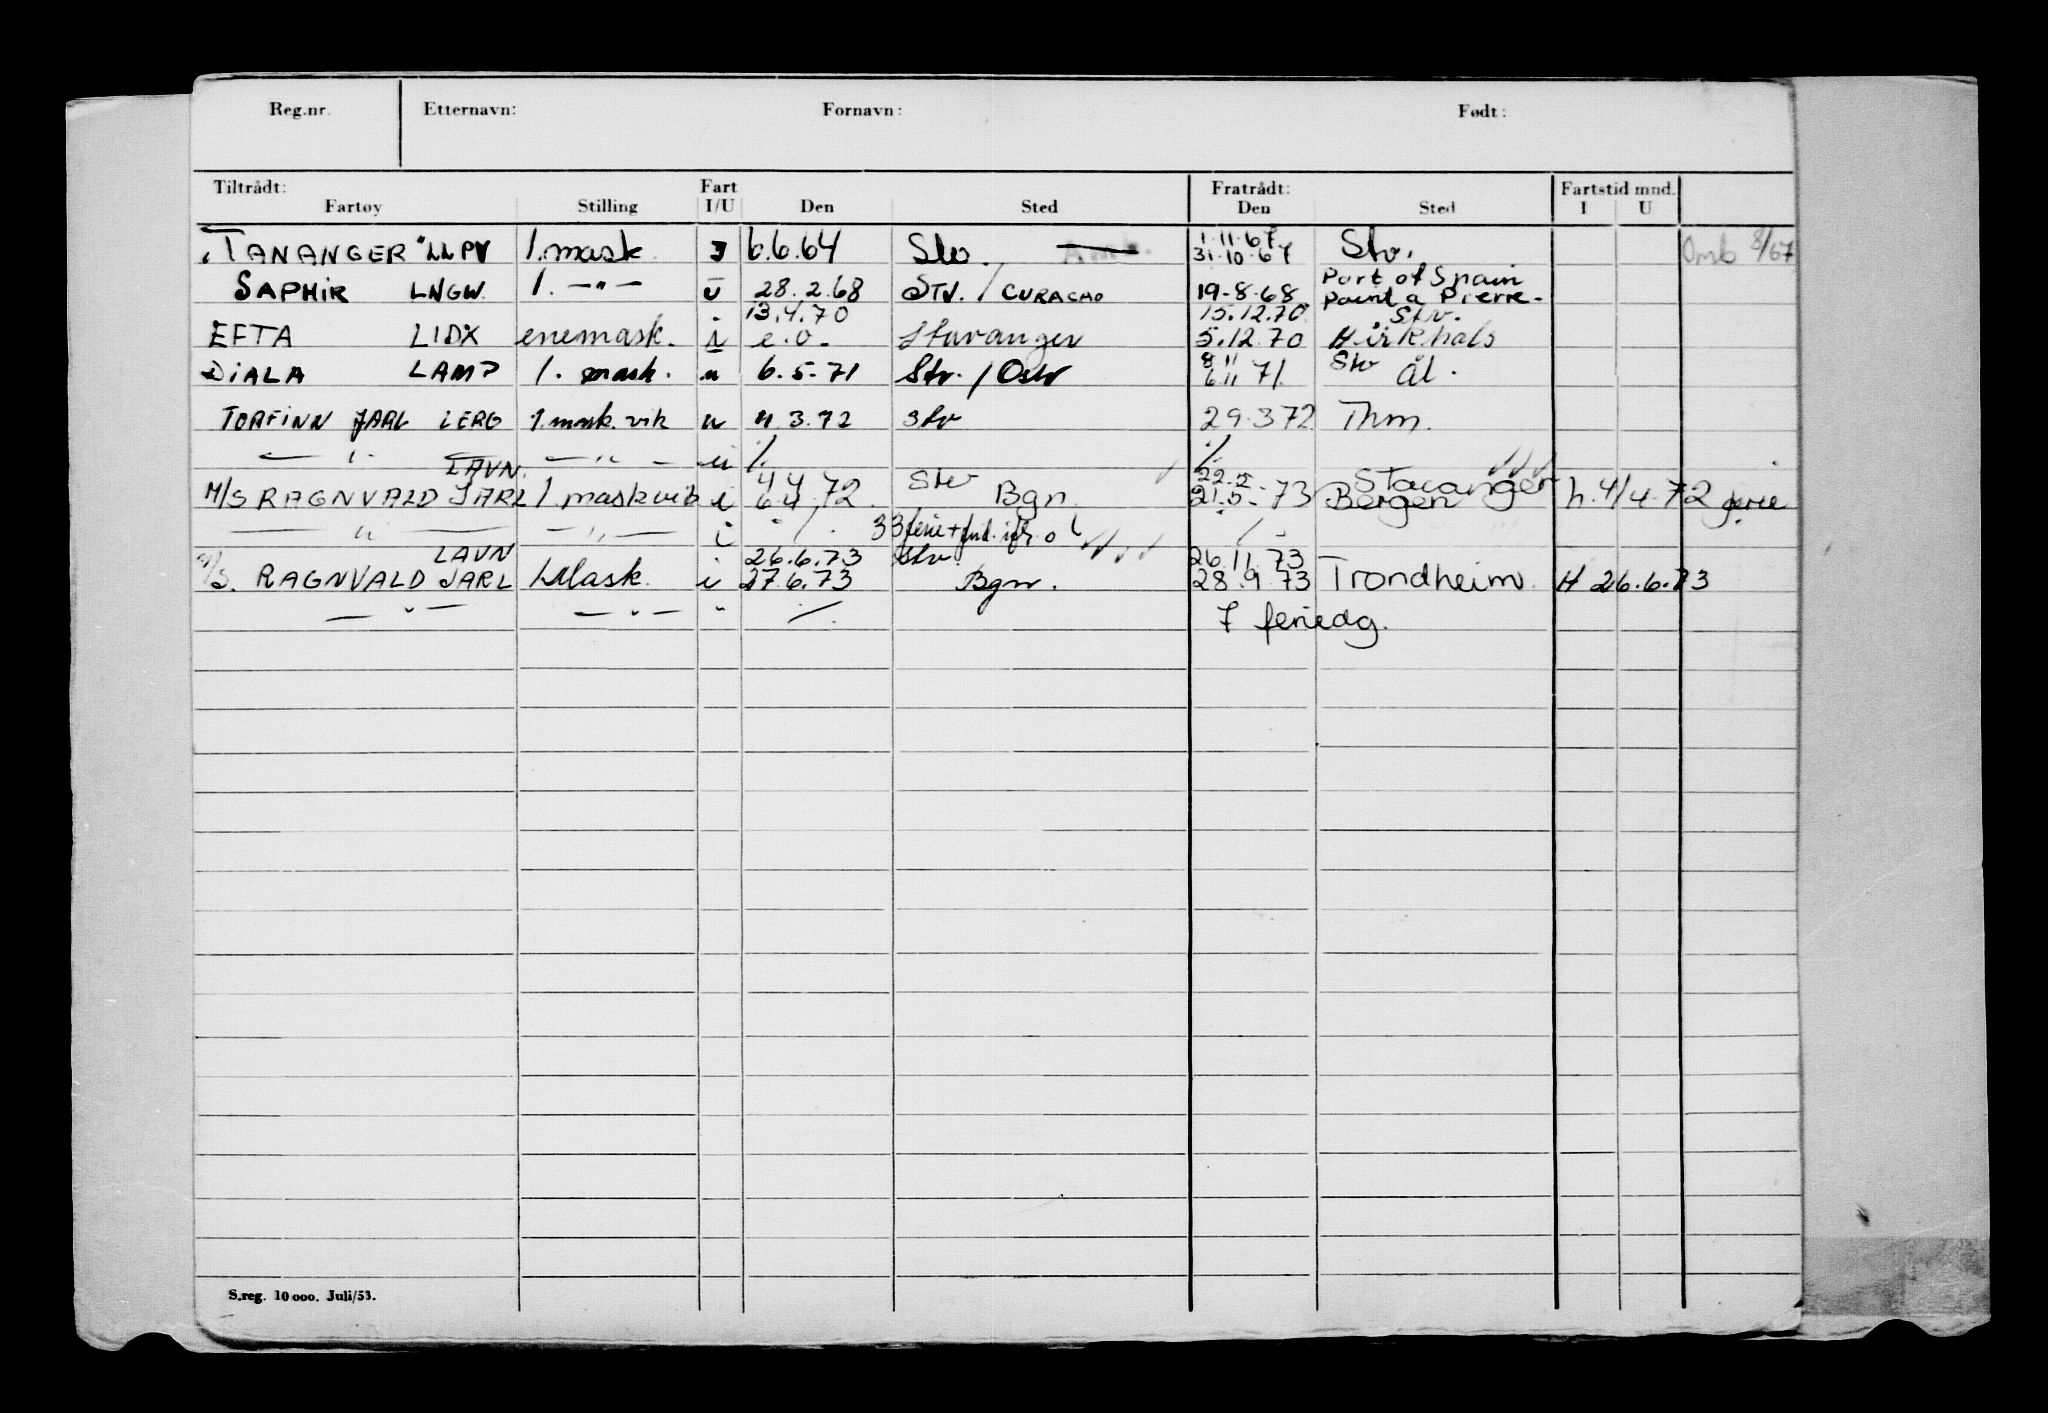 Reg.nr. Etternavn: Fornavn: Født:
Tiltrådt: Fart Fratrådt: Fartstid mnd.
Fartøy Stilling I/U Den Sted Den Sted I U
"TANANGER" LLPV 1. mask I 6.6.64 Stv. 1.11.67 Stv. Omb 8/67
31.10.67
Port of Spain
SAPHIR LNGW. 1. —"— U 28.2.68 STV. / CURACAO 19-8-68 Point a Pierre.
13.4.70 15.12.70 Stv.
EFTA LIDX enemask. i e.o. Stavanger 5.12.70 Hirtshals
8/11 Stv
DIALA LAMP 1. mask. u 6.5-71 Stv. / Oslo 6/11 71. Ål.
TORFINN JARL LERG 1. mask.vik u 4 3.72 Stv 29.3 72 Thm.
— " — — " — u ./. ./.
LAVN. 4 4 Stv 22.5- Stavanger
M/S RAGNVALD JARL 1. maskvik i 6.4.72. Bgn. 21.5-73 Bergen h. 4/4-72 ferie
— " — — " — i ./. 33 ferie + ./.
LAVN 26.6.73 Stv. 26.11.73
M/S. RAGNVALD JARL 1. Mask. i 27.6.73 Bgn. 28.9.73 Trondheim H 26.6.73
— " — — " — " ./. 7 feriedg.
S.reg. 10 000. Juli/53.